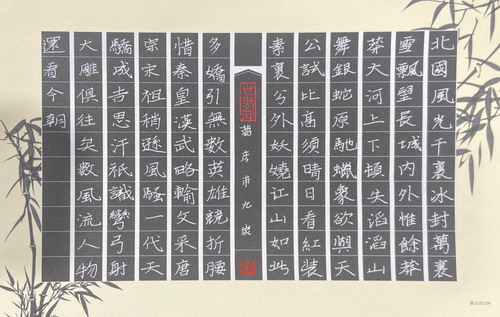 北國風光千裏冰封萬裏
雪飄望長城内外惟餘莽
莽大河上下頓失滔滔山
舞銀蛇原馳蠟象欲與天
公試比高須晴日看紅裝
素裹分外妖嬈江山如此
多嬌引無數英雄競折腰
惜秦皇漢武略輸文采唐
宗宋祖稍遜風騷一代天
驕成吉思汗祇識彎弓射
大雕俱往矣數風流人物
還看今朝